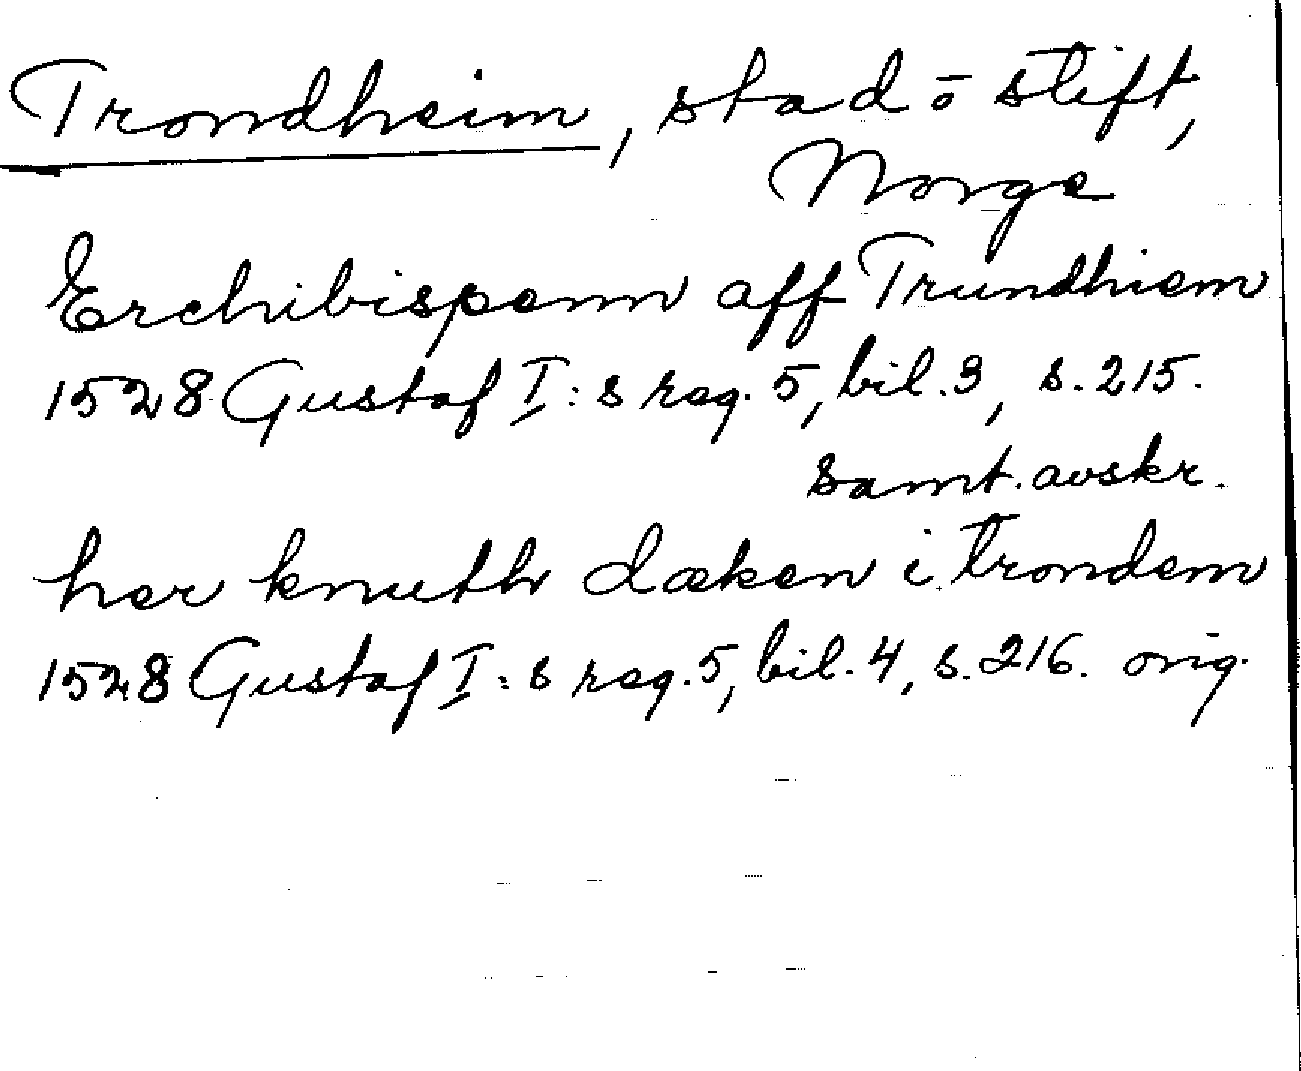 Trondheim, stad o stift,
Norge
Erchibispenn aff Trundhiem
1528 Gustaf I:s reg. 5, bil. 3, s. 215.
samt. avskr.
her knuth dæken i trondem
1528 Gustaf I:s reg. 5, bil. 4, s. 216. orig.